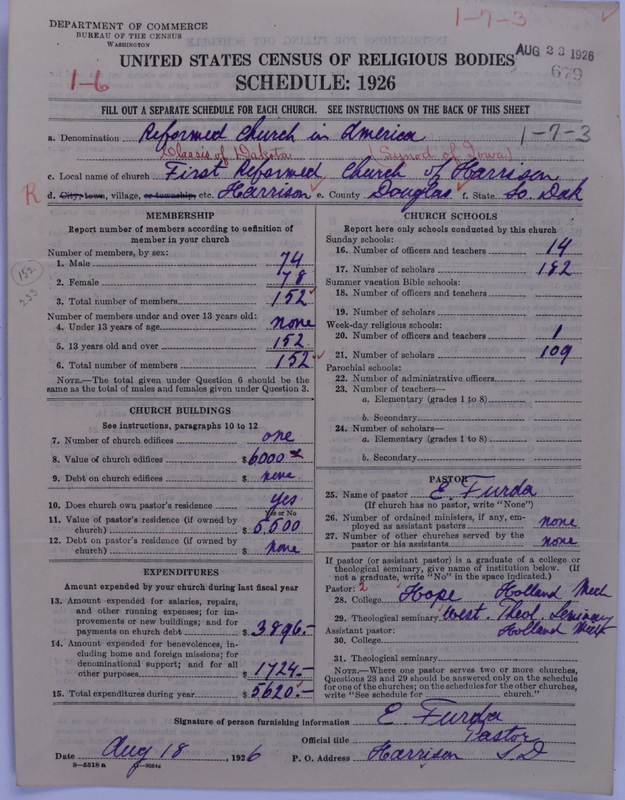 DEPARTMENT OF COMMERCE
BUREAU OF THE CENSUS
WASHINGTON
1-7-3
AUG 23 1926
679
UNITED STATES CENSUS OF RELIGIOUS BODIES
1-6
SCHEDULE: 1926
FILL OUT A SEPARATE SCHEDULE FOR EACH CHURCH. SEE INSTRUCTIONS ON THE BACK OF THIS SHEET
a. Denomination Reformed Church in America 1-7-3
Classis of Dakota (Synod of Iowa)
c. Local name of church First Reformed Church of Harrison
R d. City, town, village, or township, etc. Harrison e. County Douglas f. State So. Dak
MEMBERSHIP
Report number of members according to definition of
member in your church
Number of members, by sex:
1. Male 74
2. Female 78
3. Total number of members 152
152
233
Number of members under and over 13 years old:
4. Under 13 years of age none
5. 13 years old and over 152
6. Total number of members 152
NOTE.—The total given under Question 6 should be
same as the total of males and females given under Question 3.
CHURCH BUILDINGS
See instructions, paragraphs 10 to 12
7. Number of church edifices one
8. Value of church edifices $ 6000
9. Debt on church edifices $ none
10. Does church own pastor's residence yes
Yes or No
11. Value of pastor's residence (if owned by
church) $ 5,500
12. Debt on pastor's residence (if owned by
church) $ none
EXPENDITURES
Amount expended by your church during last fiscal year
13. Amount expended for salaries, repairs,
and other running expenses; for im-
provements or new buildings; and for
payments on church debt $ 3896.-
14. Amount expended for benevolences, in-
cluding home and foreign missions; for
denominational support; and for all
other purposes $ 1724.-
15. Total expenditures during year $ 5620.-
CHURCH SCHOOLS
Report here only schools conducted by this church
Sunday schools:
16. Number of officers and teachers 14
17. Number of scholars 182
Summer vacation Bible schools:
18. Number of officers and teachers
19. Number of scholars
Week-day religious schools:
20. Number of officers and teachers 1
21. Number of scholars 109
Parochial schools:
22. Number of administrative officers
23. Number of teachers—
a. Elementary (grades 1 to 8)
b. Secondary
24. Number of scholars—
a. Elementary (grades 1 to 8)
b. Secondary
PASTOR
25. Name of pastor E. Furda
(If church has no pastor, write "None")
26. Number of ordained ministers, if any, em-
ployed as assistant pastors none
27. Number of other churches served by the
pastor or his assistants none
If pastor (or assistant pastor) is a graduate of a college or
theological seminary, give name of institution below. (If
not a graduate, write "No" in the space indicated.)
Pastor: 2
28. College Hope Holland Mich
29. Theological seminary West. Theol. Seminary
Assistant pastor: Holland Mich
30. College
31. Theological seminary
NOTE.—Where one pastor serves two or more churches,
Questions 28 and 29 should be answered only on the schedule
for one of the churches; on the schedules for the other churches,
write "See schedule for church."
Signature of person furnishing information E. Furda
Official title Pastor
Date Aug 18, 1926 P. O. Address Harrison S D
8-5518a